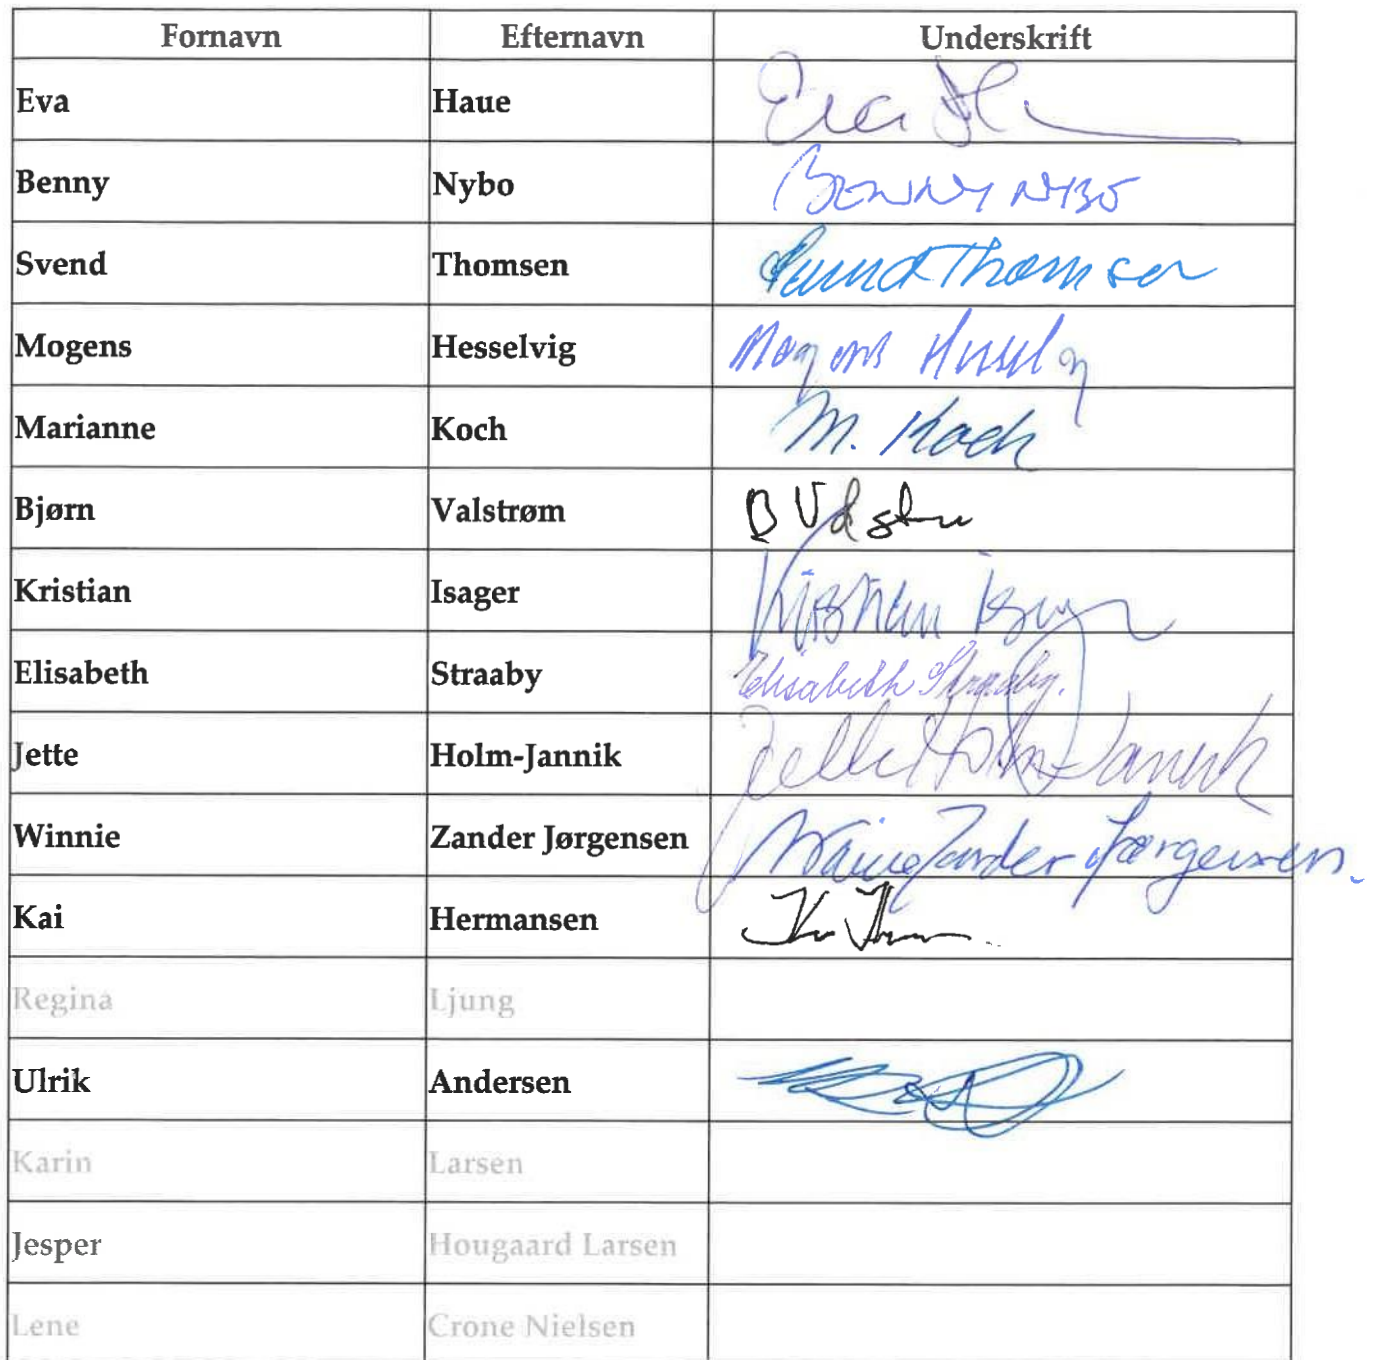 Fornavn Efternavn Underskrift
Eva Haue Eva
Benny Nybo BENNY NYBO
Svend Thomsen Svend Thomsen
Mogens Hesselvig Mogens
Marianne Koch M. Koch
Bjørn Valstrøm B
Kristian Isager Kristian
Elisabeth Straaby Elisabeth Straaby.
Jette Holm-Jannik Jette Holm-Jannik
Winnie Zander Jørgensen Winnie Zander Jørgensen.
Kai Hermansen
Regina Ljung
Ulrik Andersen
Karin Larsen
Jesper Hougaard Larsen
Lene Crone Nielsen